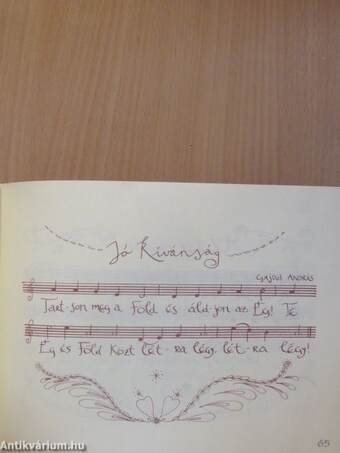 Jó Kívánság
Gryllus András
Tart-son meg a Föld és áld-jon az Ég! Te
Ég és Föld közt lét-ra légy, lét-ra légy!
65
Antikvárium.hu